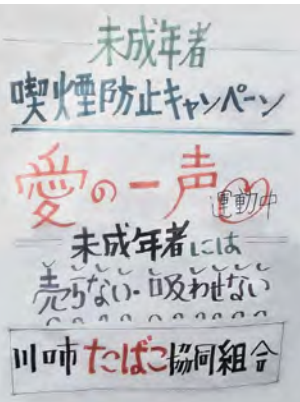 未成年者
喫煙防止キャンペーン
愛の一声
運動中
未成年者には
売らない・吸わせない
川口市たばこ協同組合